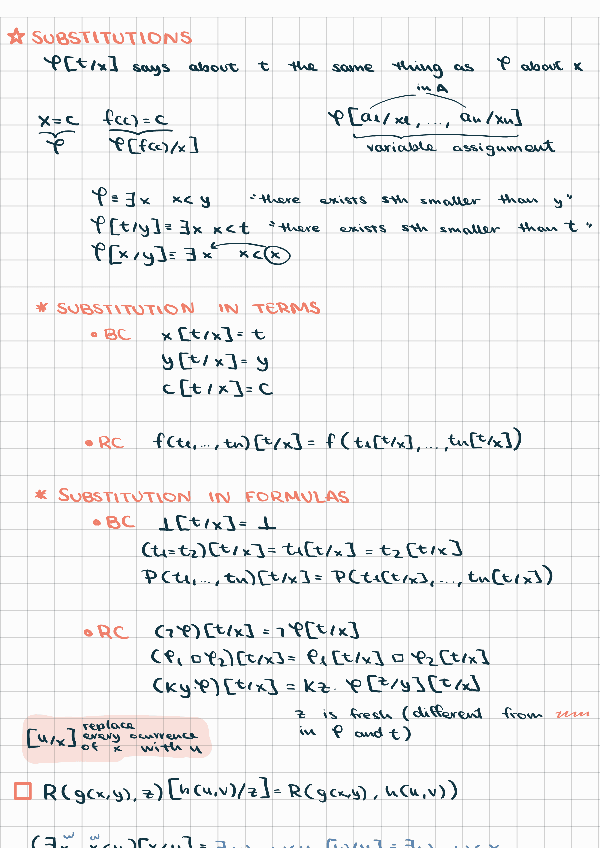 ☆ SUBSTITUTIONS
φ[t/x] says about t the same thing as φ about x
in A
x=c f(c)=c φ[a1/x1, ..., an/xn]
φ φ[f(c)/x] variable assignment
φ≡∃x x<y "there exists sth smaller than y"
φ[t/y]≡∃x x<t "there exists sth smaller than t"
φ[x/y]≡∃x x<x
* SUBSTITUTION IN TERMS
• BC x[t/x]=t
y[t/x]=y
c[t/x]=c
• RC f(t1,...,tn)[t/x]= f(t1[t/x],...,tn[t/x])
* SUBSTITUTION IN FORMULAS
• BC ⊥[t/x]=⊥
(t1=t2)[t/x]=t1[t/x]=t2[t/x]
P(t1,...,tn)[t/x]= P(t1[t/x],...,tn[t/x])
• RC (¬φ)[t/x]=¬φ[t/x]
(φ1 □ φ2)[t/x]= φ1[t/x] □ φ2[t/x]
(Ky.φ)[t/x]=Kz. φ[z/y][t/x]
z is fresh (different from
in φ and t)
[u/x] replace
every ocurrence
of x with u
□ R(g(x,y),z)[h(u,v)/z]=R(g(x,y),h(u,v))